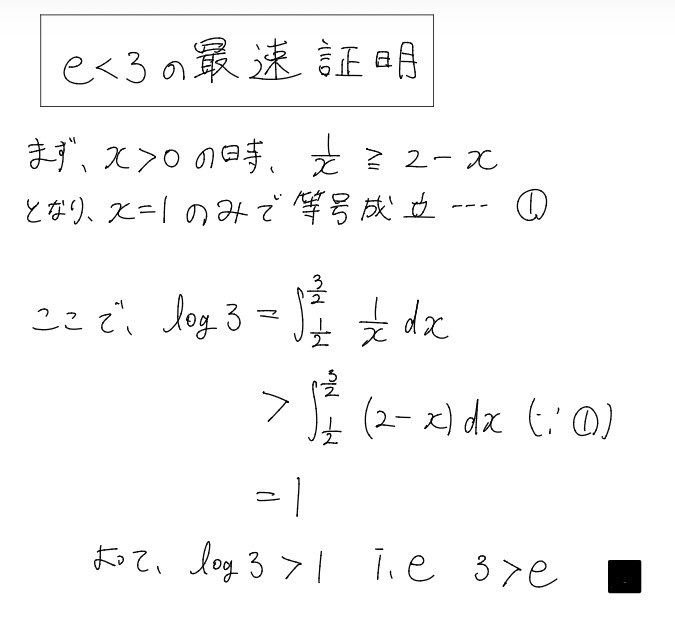 e<3の最速証明
まず、x>0の時、1/x ≧ 2-x
となり、x=1のみで等号成立…①
ここで、log3 = ∫_{1/2}^{3/2} 1/x dx
> ∫_{1/2}^{3/2} (2-x)dx (∵①)
=1
よって、log3>1 i.e 3>e ■